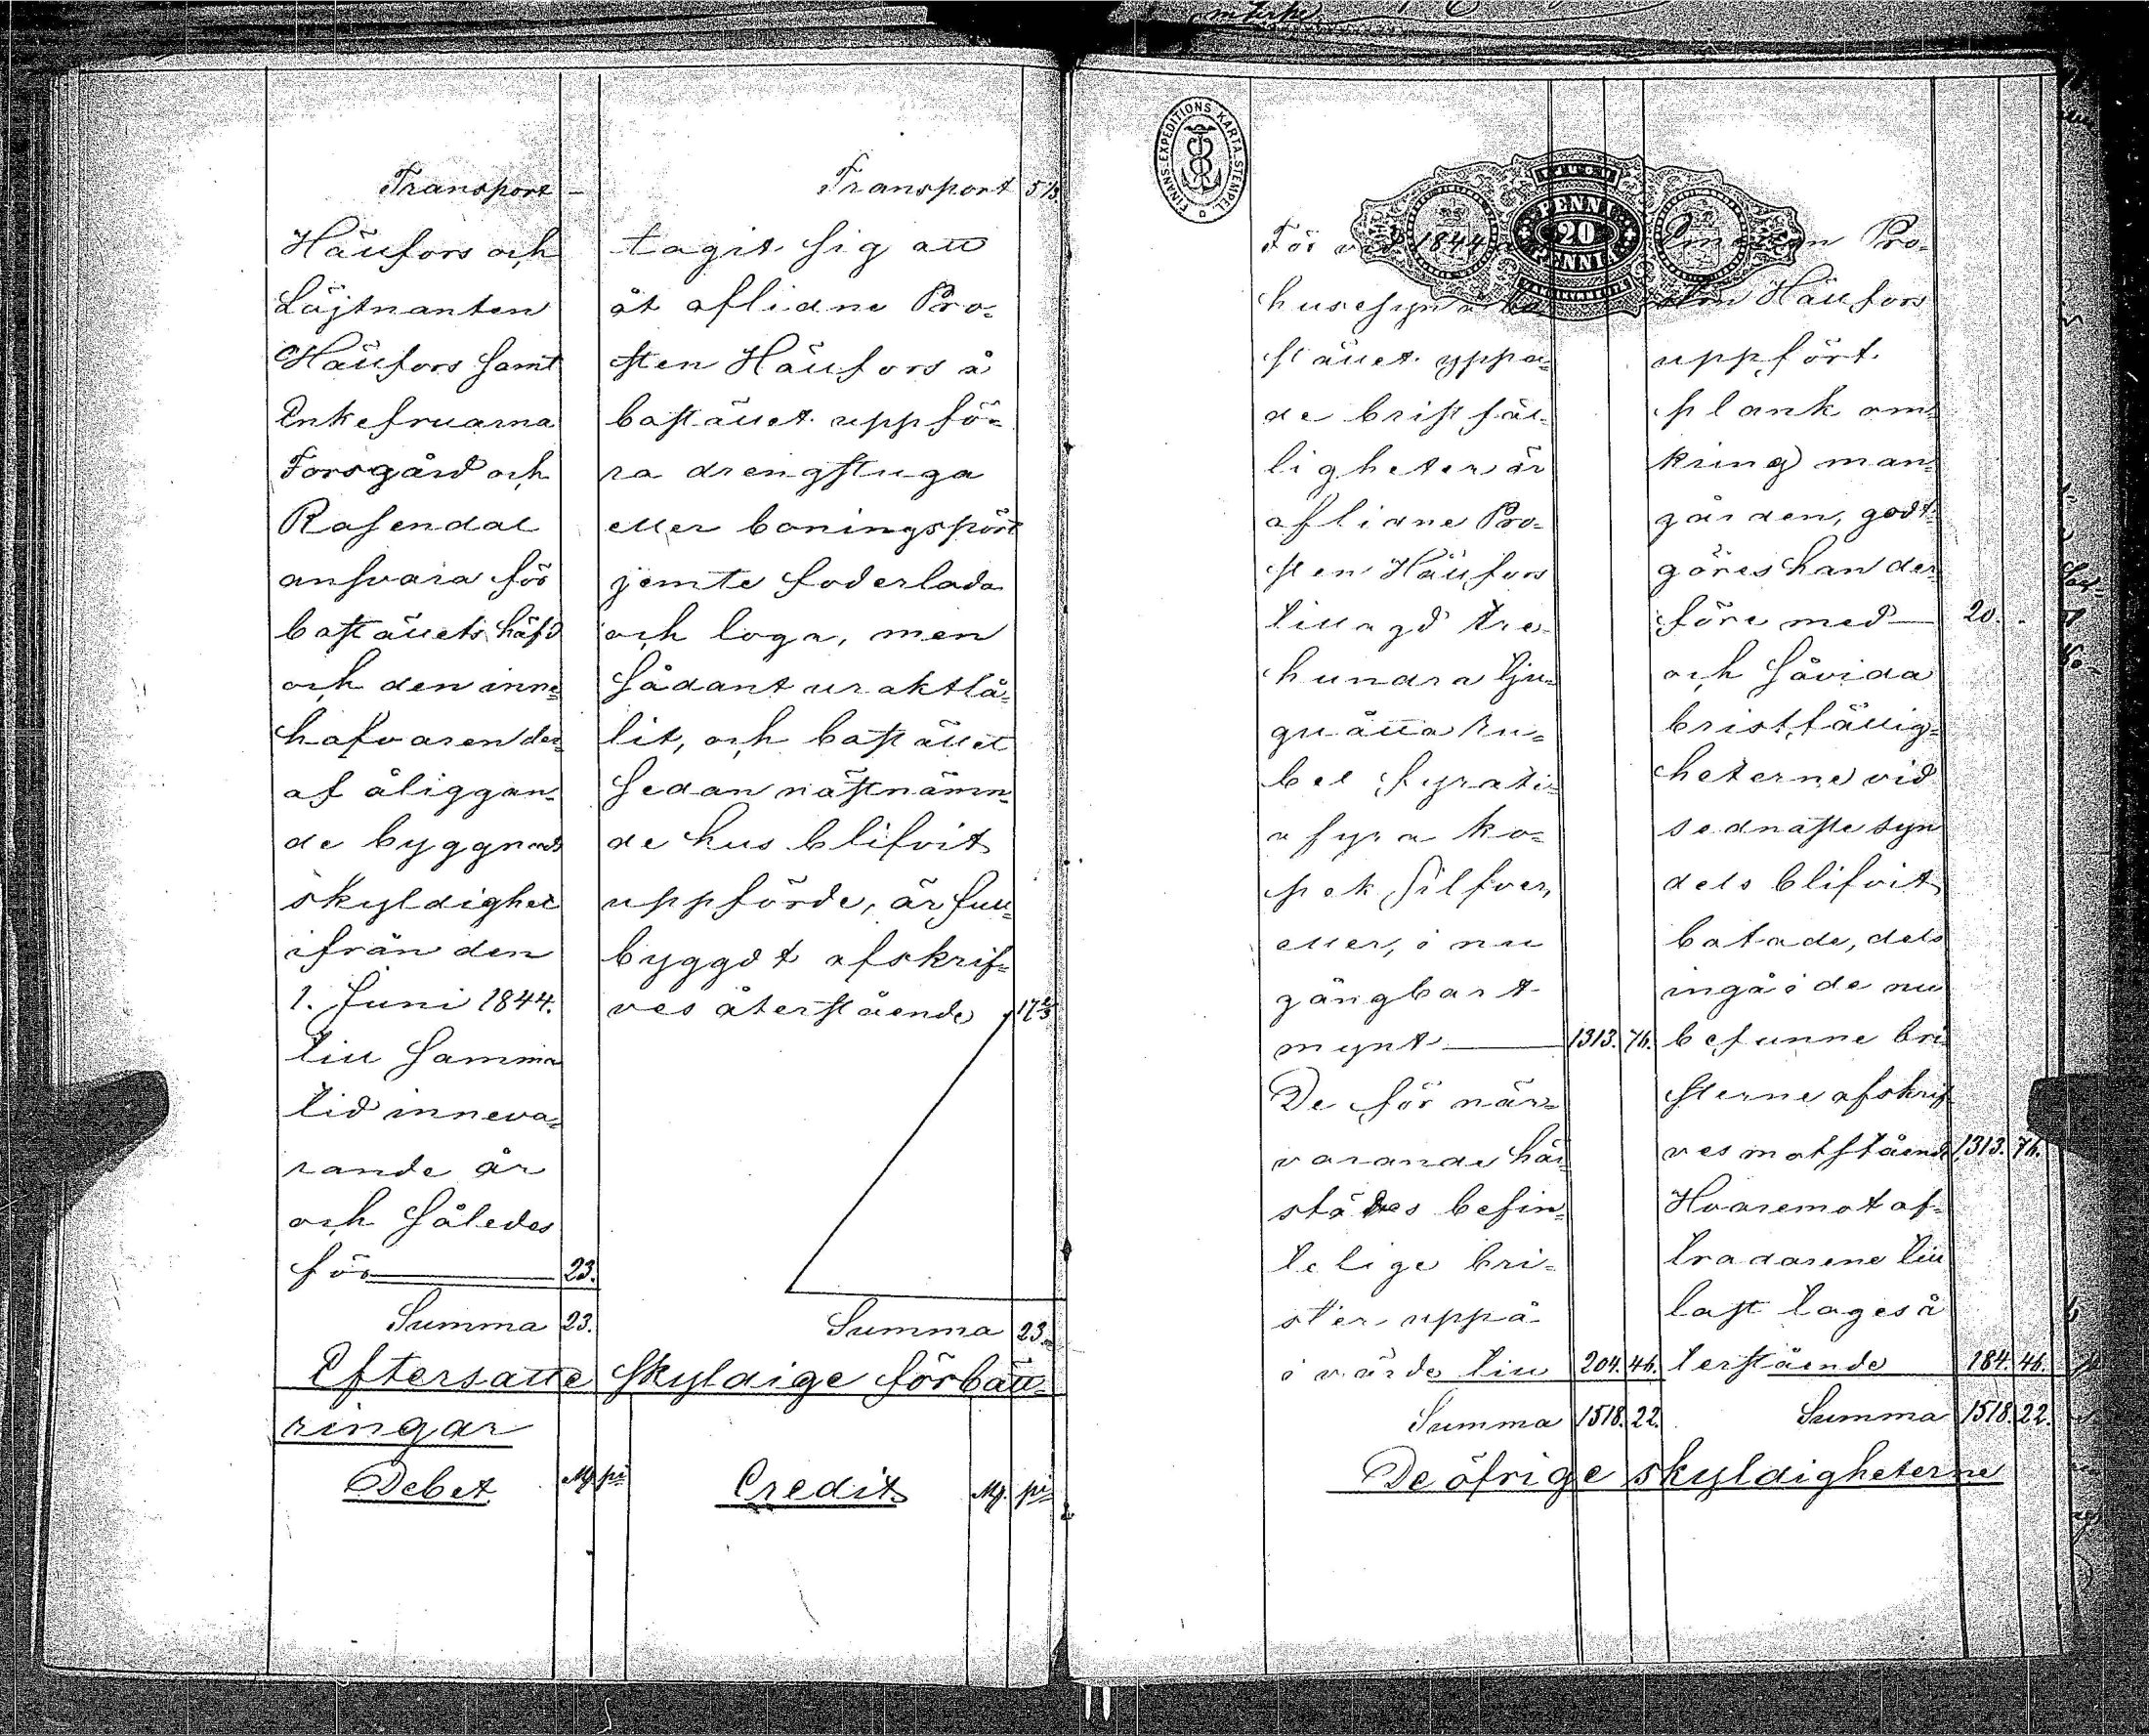 Transport –
Hällfors och
Löjtnanten
Hällfors samt
Enkefruarna
Forsgård och
Rosendal
ansvara för
boställets häfd
och den inne-
hafvaren der-
af åliggan-
de byggnads
skyldighet
ifrån den
1. Juni 1844.
till samma
tid inneva-
rande år
och således
för 23.
Summa 23.
Transport 5 1/3
tagit sig att
åt aflidne Pro-
sten Hällfors å
bostället uppfö-
ra drengstuga
eller boningspört
jemte foderlada
och loga, men
sådant uraktlå-
tit, och bostället
sedan nästnämn-
de hus blifvit
uppförde, är full-
byggdt afskrif-
ves återstående 17 2/3
Summa 23.
Eftersatte skyldige förbätt-
ringar
Debet Mk pi
Credit Mk pi
FINANS-EXPEDITIONS KARTA STEMPEL
PENNI
20
PENNIÄ
För vid 1844
husesyn å bo-
stället yppa-
de bristfäl-
ligheter är
aflidne Pro-
sten Hällfors
tillagd tre-
hundra tju-
guåtta Ru-
bel fyrati-
o fyra ko-
pek silfver,
eller, i nu
gångbart
mynt 1313. 76.
De för när-
varande här-
städes befin-
telige bri-
ster uppå
i värde till 204. 46.
Summa 1518. 22.
Emedan Pro-
sten Hällfors
uppfört
plank om-
kring man-
gården, godt-
göres han der-
före med 20. .
och såvida
bristfällig-
heterne vid
sednaste syn
dels blifvit
botade, dels
ingå i de nu
befunne bri-
sterne afskrif-
ves motstående 1313. 76.
Hvaremot af-
trädarene till
last tages å-
terstående 184. 46.
Summa 1518. 22.
De öfrige skyldigheterne